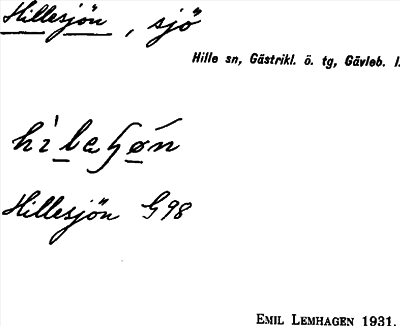 Hillesjön, sjö
Hille sn, Gästrikl. ö. tg, Gävleb. l.
Hillesjön G98
EMIL LEMHAGEN 1931.